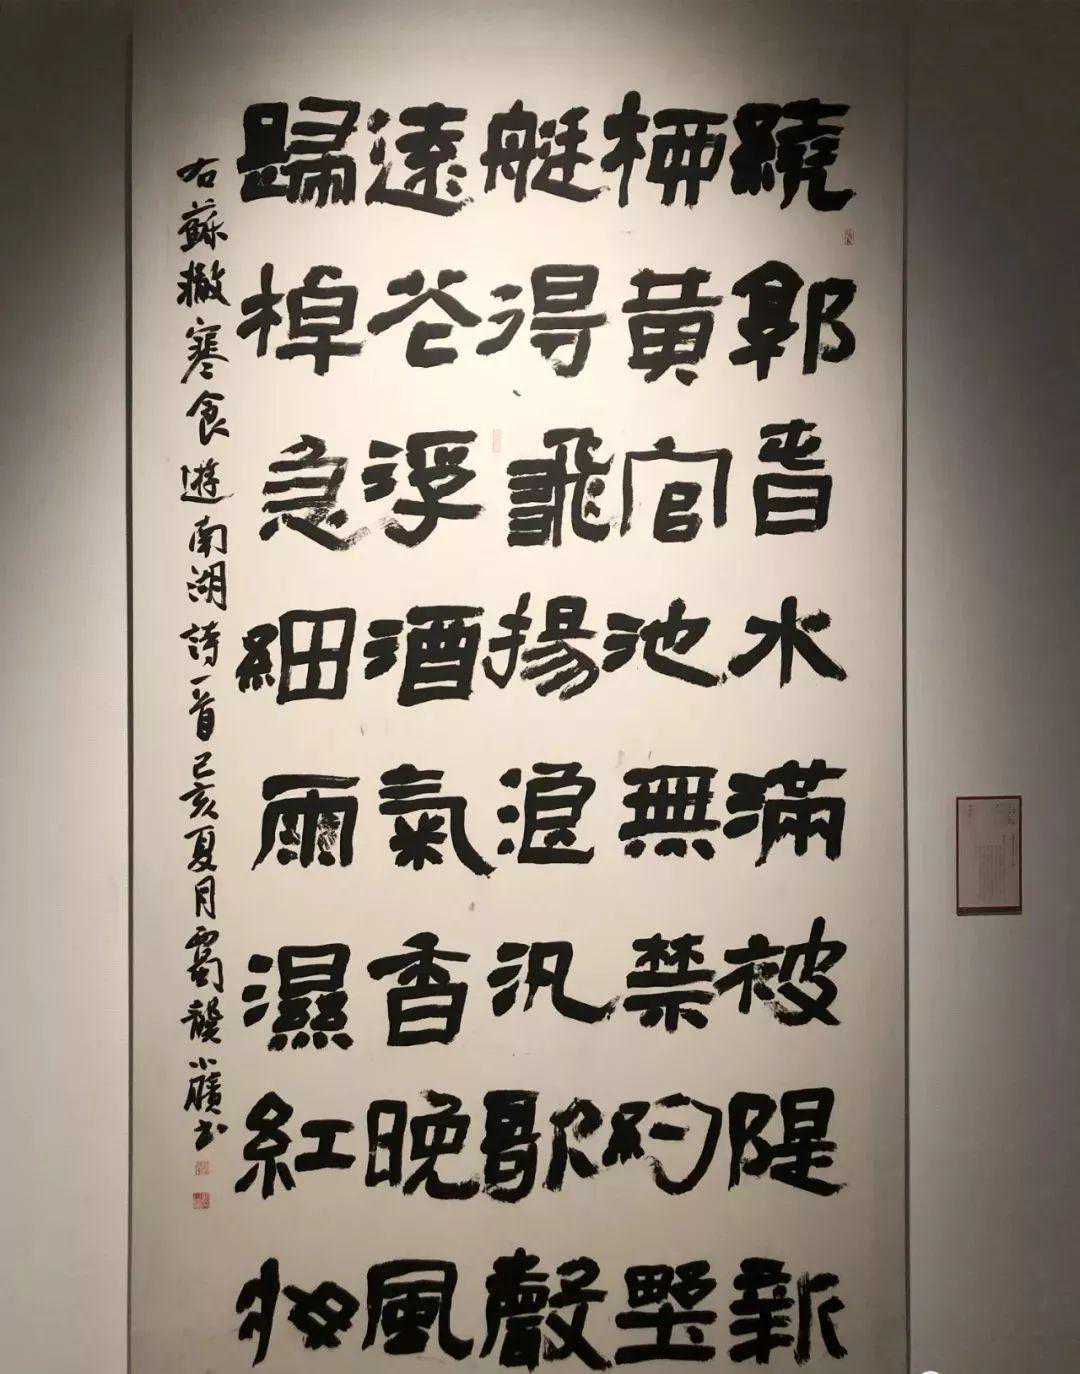 繞郭春水滿被隄新
桺黃官池無禁約墅
艇得飛揚浪汎歌聲
遠花浮酒氣香晚風
歸棹急細雨濕紅妝
右蘇轍寒食遊南湖詩一首己亥夏月蜀龔小膑书